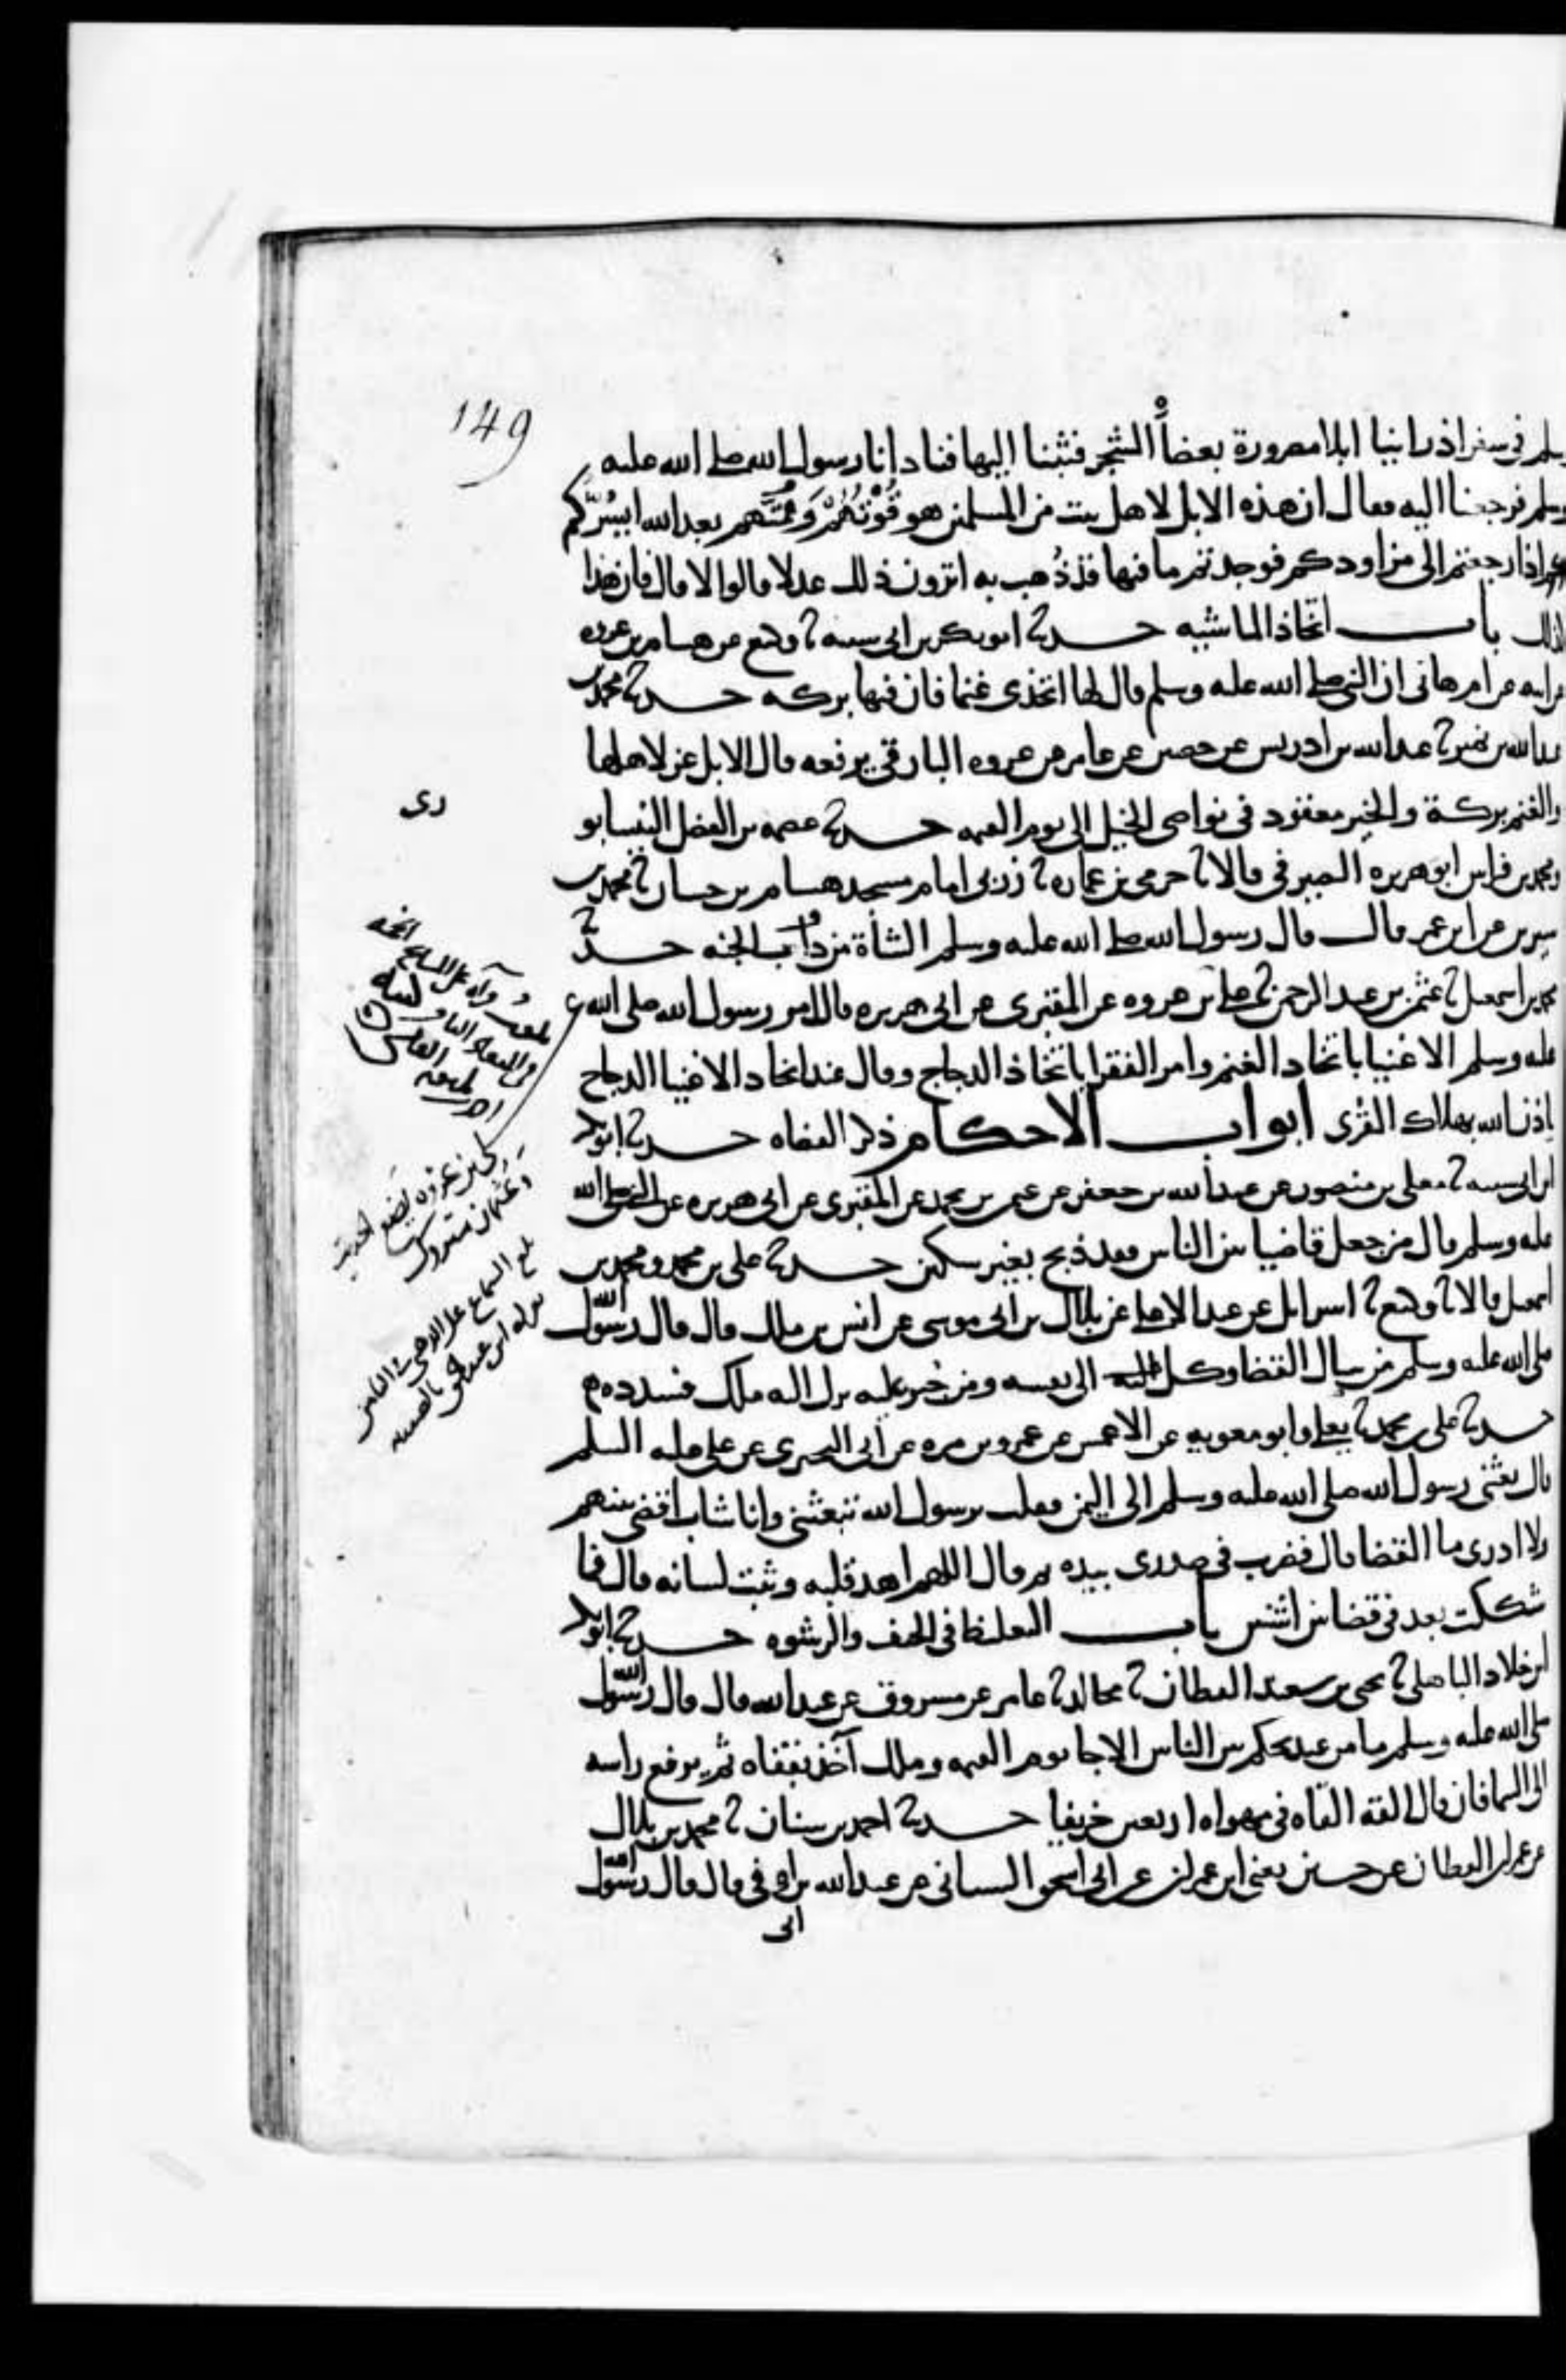 149
سلم في سفر اذ راينا ابلا مصرورة بعضاه الشجر فثبنا اليها فنادانا رسول الله صلى الله عليه
وسلم فرجعنا اليه فقال ان هذه الابل لاهل بيت من المسلمين هو قُوْتُهُمْ وَيُمنهم بعد الله ايسُرُّكم
لو اذا رجعتم الى مزاودكم فوجدتم ما فيها قد ذُهب به اترون ذلك عدلا قالوا لا قال فان هذا
كذلك باب اتخاذ الماشيه حدثنا ابو بكر بن ابي شيبه نا وكيع عن هشام بن عروه
عن ابيه عن ام هاني ان النبي صلى الله عليه وسلم قال لها اتخذى غنما فان فيها بركه حدثنا محمد بن
عبد الله بن نمير نا عبد الله بن ادريس عن حصين عن عامر عن عروه البارقي يرفعه قال الابل عز لاهلها
والغنم بركة والخير معقود في نواصي الخيل الى يوم القيمه حدثنا عصمه بن الفضل النيسابو
رى
ومحمد بن فراس ابو هريره الصيرفي قالا نا حرمي بن عماره نا زربي امام مسجد هشام بن حسان نا محمد بن
سيرين عن ابن عمر قال قال رسول الله صلى الله عليه وسلم الشاة من دواب الجنه حدثنا
محمد بن اسمعيل نا عثمن بن عبد الرحمن نا علي بن عروه عن المقبري عن ابي هريره قال امر رسول الله صلى الله
عليه وسلم الاغنيا باتخاذ الغنم وامر الفقرا باتخاذ الدجاج وقال عند اتخاذ الاغنيا الدجاج
ياذن الله بهلاك القرى ابواب الاحكام ذكر القضاه حدثنا ابو بكر
ابن ابي شيبه نا معلى بن منصور عن عبد الله بن جعفر عن عثمن بن محمد عن المقبري عن ابي هريره عن النبي صلى الله
عليه وسلم قال من جعل قاضيا بين الناس فقد ذبح بغير سكين حدثنا علي بن محمد ومحمد بن
اسمعيل قالا نا وكيع نا اسرائل عن عبد الاعلى عن بلال بن ابي موسى عن انس بن ملك قال قال رسول الله
صلى الله عليه وسلم من سال القضا وكل الى نفسه ومن جبر عليه نزل اليه ملك فسدده
حدثنا علي بن محمد نا يعلى وابو معويه عن الاعمش عن عمرو بن مره عن ابي البختري عن علي عليه السلم
قال بعثني رسول الله صلى الله عليه وسلم الى اليمن فقلت يرسول الله تبعثني وانا شاب اقضي بينهم
ولا ادرى ما القضا قال فضرب في صدرى بيده ثم قال اللهم اهد قلبه وثبت لسانه قال فما
شككت بعد في قضا بين اثنين باب التغليظ في الحيف والرشوه حدثنا ابو بكر
ابن خلاد الباهلي نا يحيى بن سعيد القطان نا مجالد نا عامر عن مسروق عن عبد الله قال قال رسول الله
صلى الله عليه وسلم ما من عبد يحكم بين الناس الا جا يوم القيمه وملك آخذ بقفاه ثم يرفع راسه
الى السما فان قال القه القاه في مهواه اربعين خريفا حدثنا احمد بن سنان نا محمد بن بلال
عن عمران القطان عن حسين يعني ابن عمران عن ابي اسحق الشيباني عن عبد الله بن ابي اوفى قال قال رسول الله
علي بن عروه يضع الحديث
وعثمان متروك